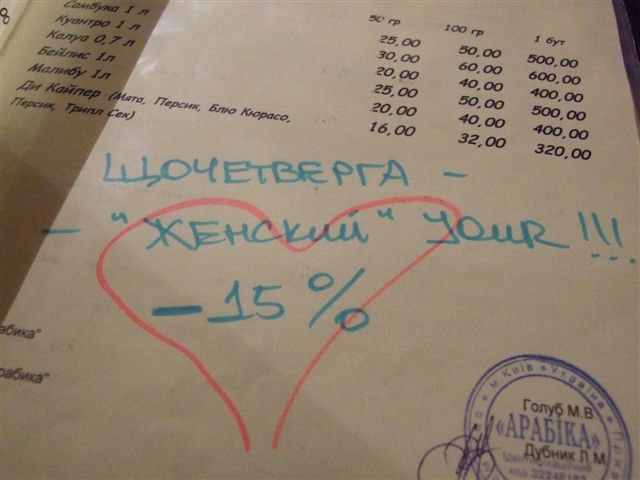 50 гр 100 гр 1 бут
Самбука 1 л 25,00 50,00 500,00
Куантро 1 л 30,00 60,00 600,00
Калуа 0,7 л 20,00 40,00 400,00
Бейлис 1л 25,00 50,00 500,00
Малибу 1л 20,00 40,00 400,00
Ди Кайпер (Мята, Персик, Блю Кюрасо, 16,00 32,00 320,00
Персик, Трипл Сек)
ЩОЧЕТВЕРГА –
– "ЖЕНСКИЙ" YOUR !!!
– 15 %
м Київ * Україна *
Голуб М.В
«АРАБІКА»
Дубник Л М
код